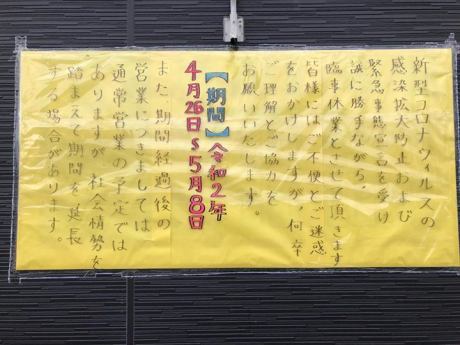 新型コロナウィルスの
感染拡大防止および
緊急事態宣言を受け
誠に勝手ながら、
臨時休業とさせて頂きます
皆様にはご不便とご迷惑
をおかけしますが、何卒
ご理解とご協力を
お願いいたします。
【期間】令和2年
4月26日〜5月8日
また期間経過後の
営業につきましては
通常営業の予定では
ありますが、社会情勢を
踏まえて期間を延長
する場合があります。